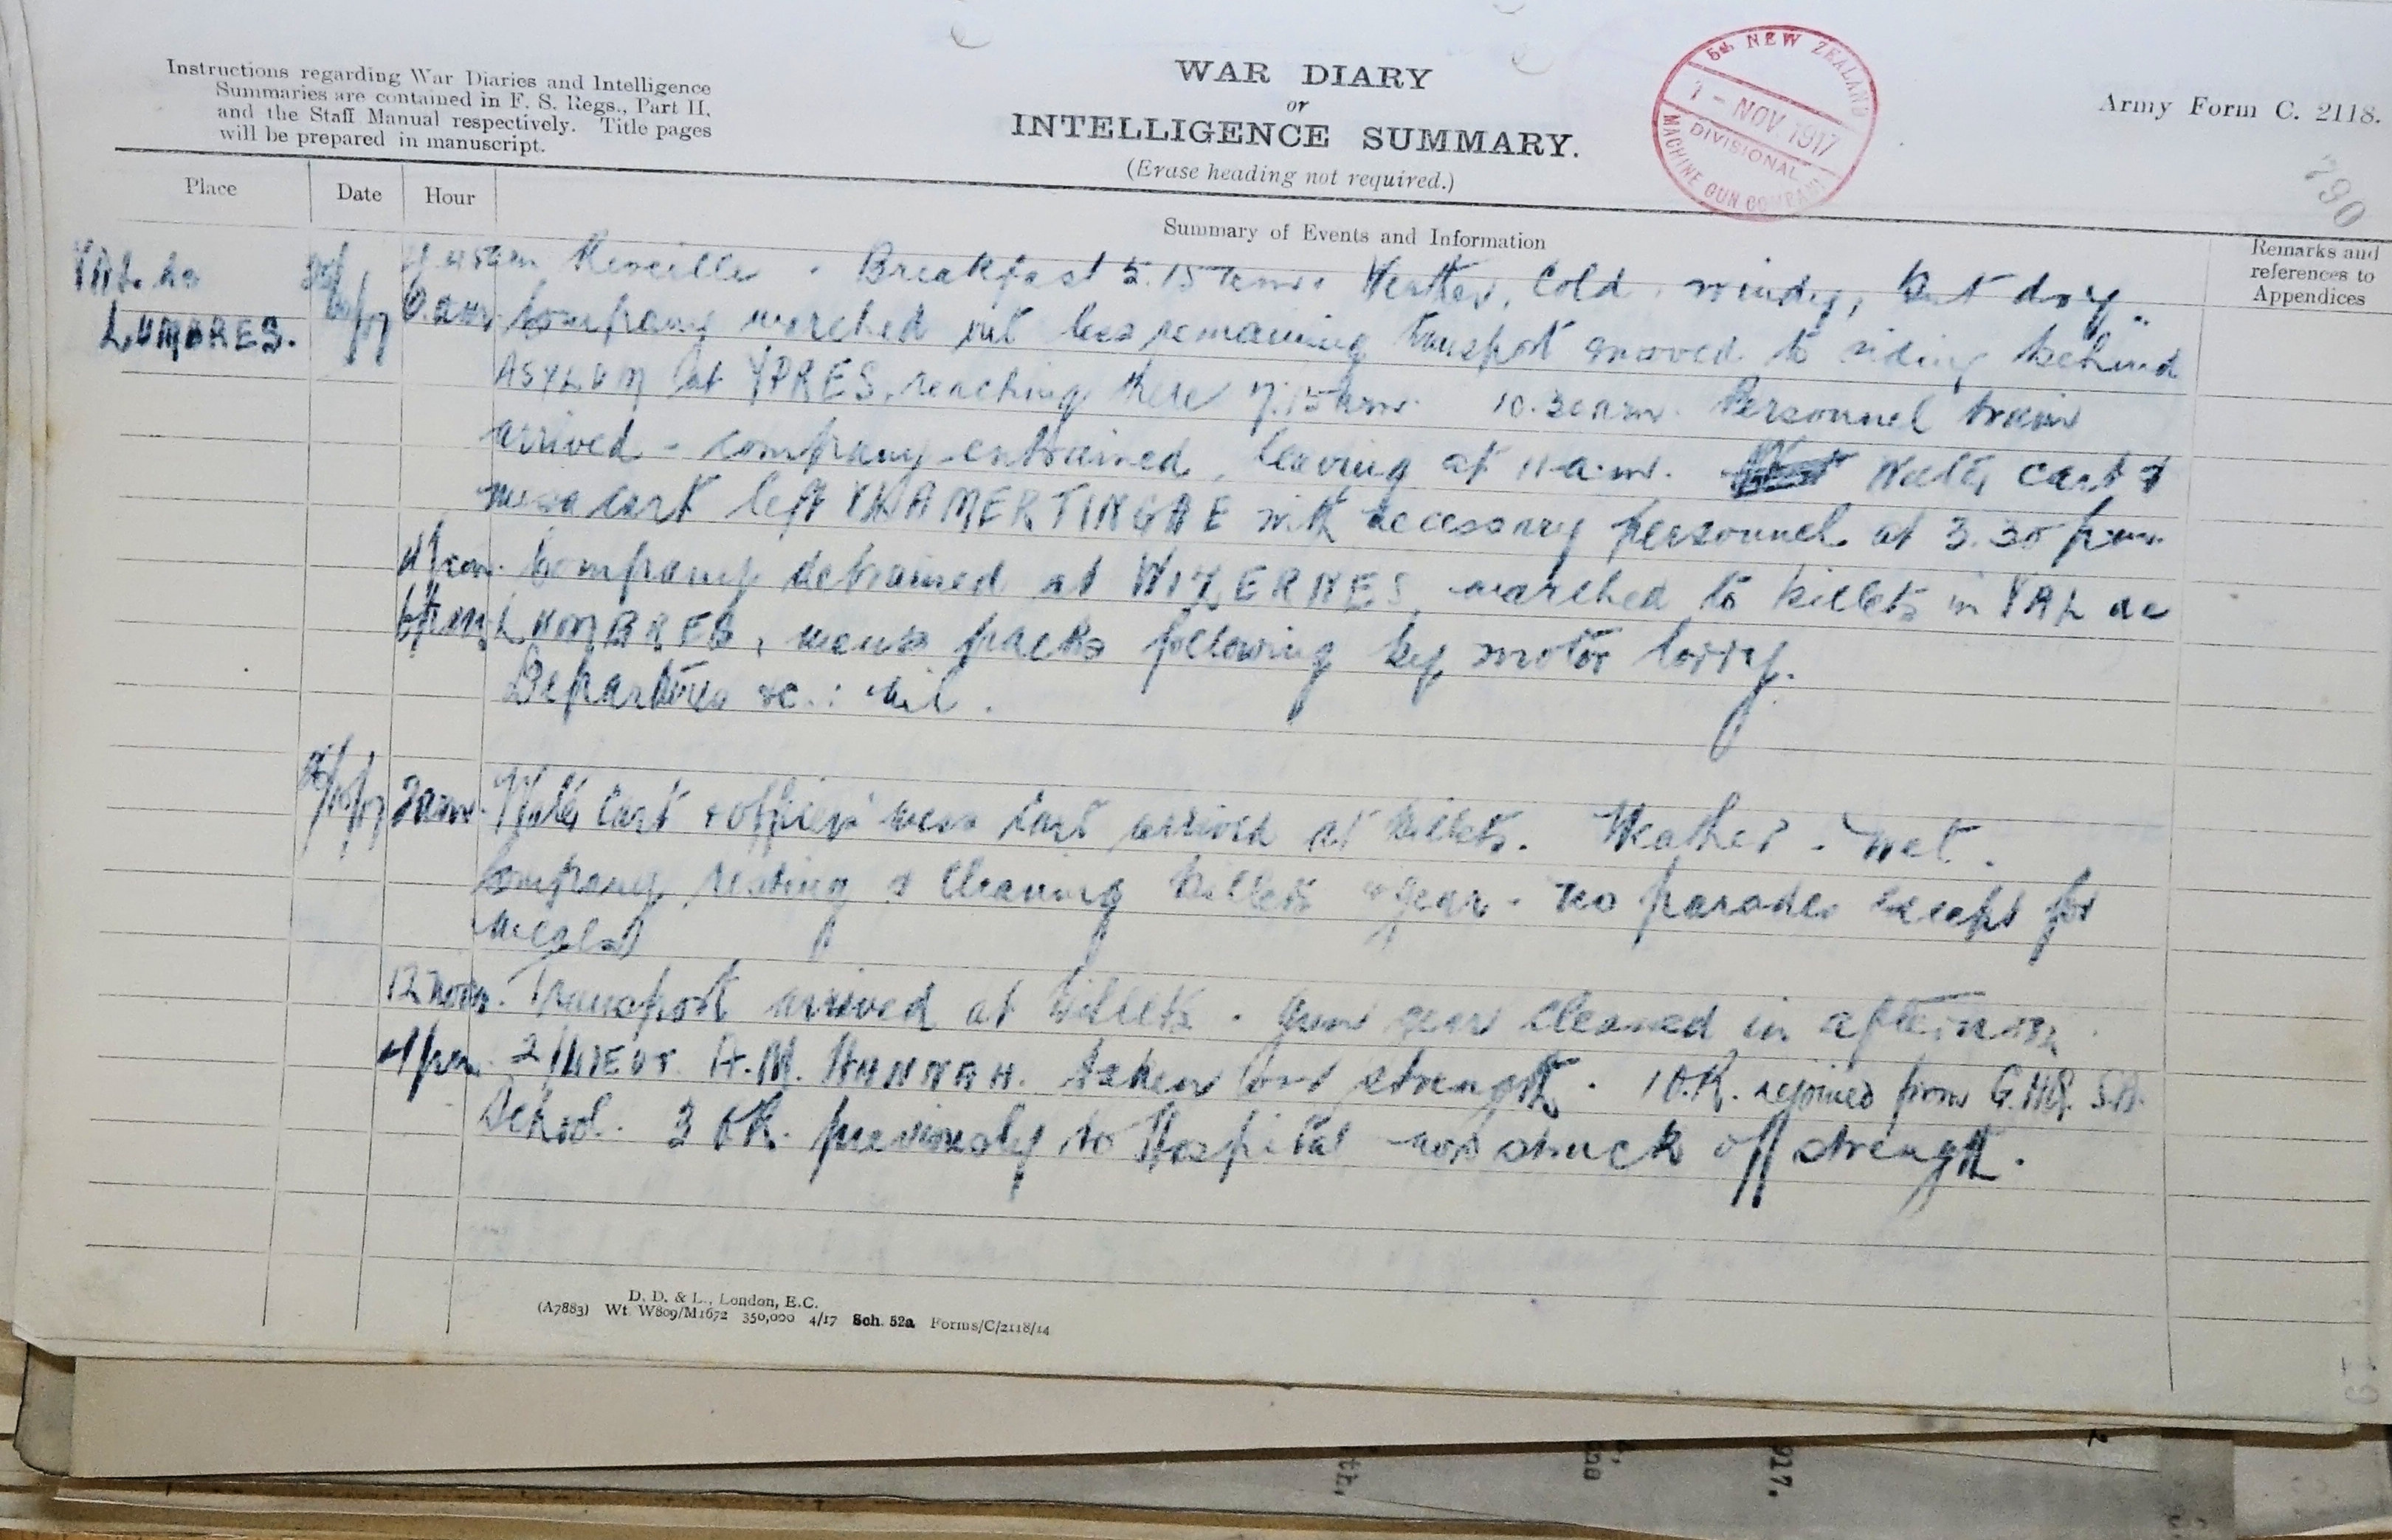 Instructions regarding War Diaries and Intelligence
Summaries are contained in F. S. Regs., Part II,
and the Staff Manual respectively. Title pages
will be prepared in manuscript.
WAR DIARY
or
INTELLIGENCE SUMMARY.
(Erase heading not required.)
5th NEW ZEALAND
1 - NOV 1917
DIVISIONAL
MACHINE GUN COMPANY
Army Form C. 2118.
790
Place
Date
Hour
Summary of Events and Information
Remarks and
references to
Appendices
VAL de
LUMBRES.
Reveille. Breakfast 5.15 am. Weather, Cold, windy, but dry.
Company marched out less remaining transport moved to siding behind
ASYLUM at YPRES, reaching there 7.15 am. 10.30 am. Personnel train
arrived - company entrained, leaving at 11 a.m. Water cart &
mess cart left VLAMERTINGHE with necessary personnel at 3.30 pm
Company detrained at WIZERNES, marched to billets in VAL de
6pm LUMBRES, men's packs following by motor lorry.
Departures &c.: nil.
2am. Water Cart & officers' mess cart arrived at billets. Weather - wet.
Company resting & cleaning billets & gear - no parades except for
meals
12 noon. Transport arrived at billets. Gun gear cleaned in afternoon.
4pm. 2/LIEUT. A.M. HANNAH. taken on strength. 1 O.R. rejoined from G.H.Q. S.A.
School. 3 OR. previously to Hospital now struck off strength.
D. D. & L., London, E.C.
(A7883) Wt. W809/M1672 350,000 4/17 Sch. 52a Forms/C/2118/14
19
917.